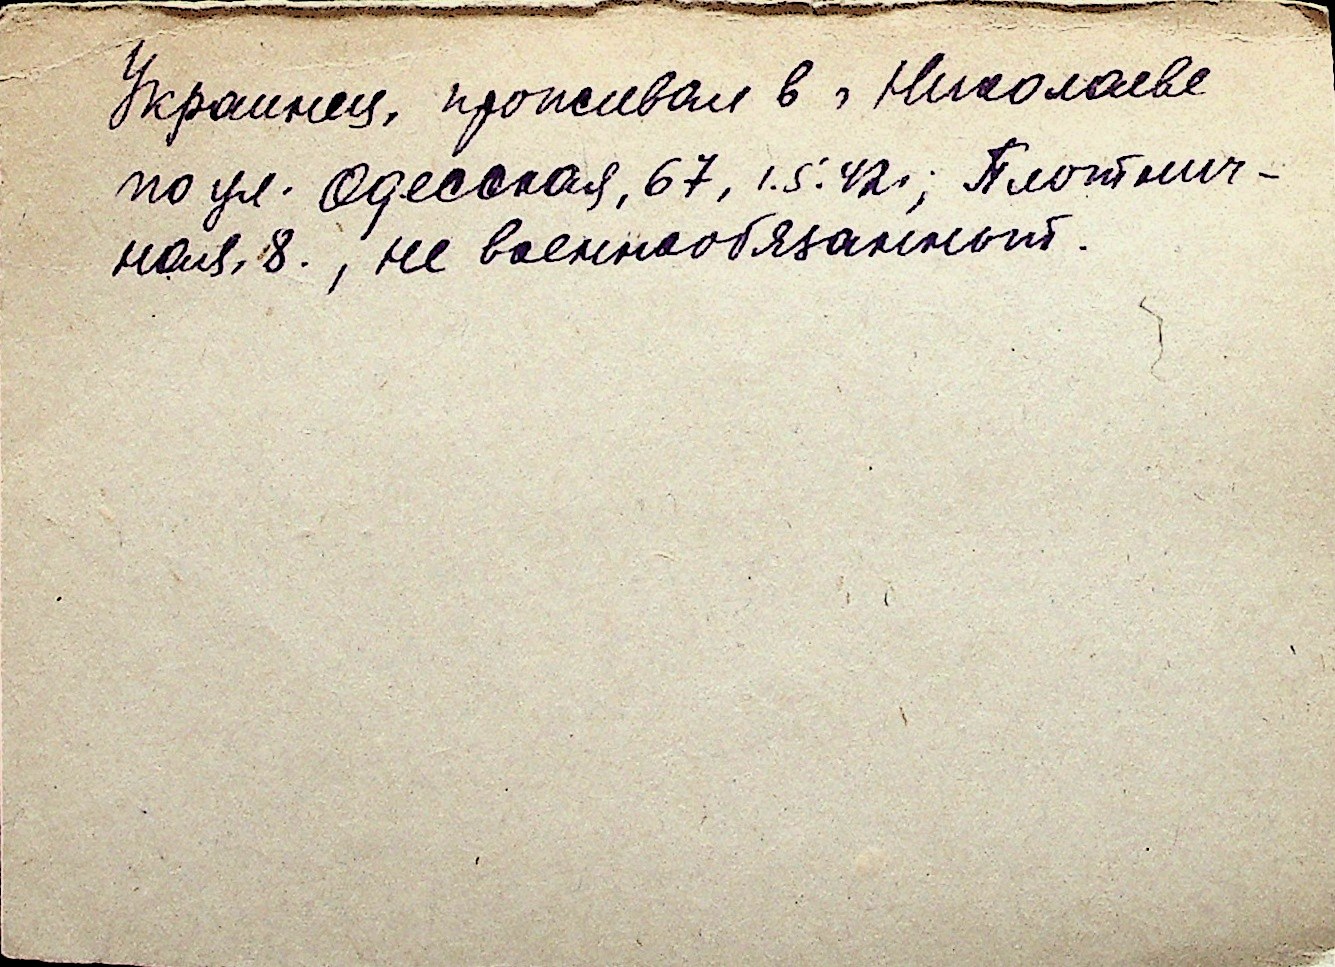 Украинец, проживал в г Николаеве
по ул. Одесская, 67, 1.5.42г; Плотнич-
ная, 8., не военнообязанный.